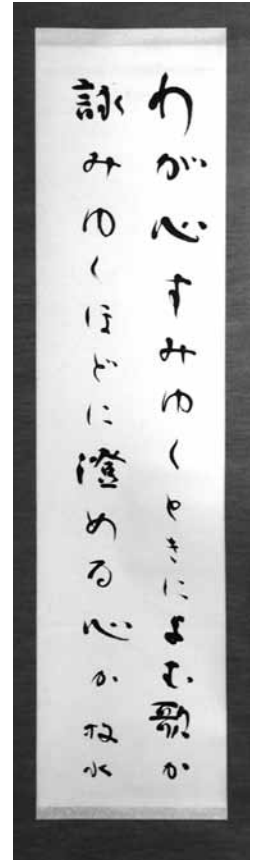 わが心すみゆくときによむ歌か
詠みゆくほどに澄める心か 牧水